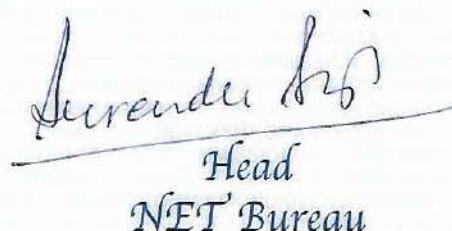 Surender Singh
Head
NET Bureau